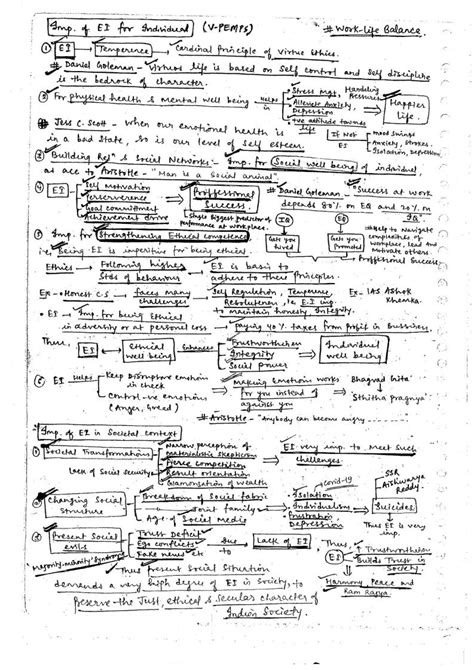 Imp. of EI for Individual (V-PEMPS)
# Work-life Balance
① EI → Temperence → Cardinal principle of Virtue Ethics.
# Daniel Goleman - Virtuous life is based on Self control and Self discipline
is the bedrock of character.
② For physical health & Mental well being → helps in → Stress mgt, Handeling Pressures
Alleviate Anxiety, Depression
+ve attitude towards life
Happier life.
# Jess C. Scott - When our emotional health is
in a bad state, so is our level of self esteem.
If Not EI
mood swings
Anxiety, strokes.
Isolation, depression
③ Building Reln & Social Networks - Imp. for Social well being of individual
as acc to Aristotle - "Man is a Social animal".
④ EI → Self Motivation
Perserverence
Goal commitment
Achievement drive
Proffessional Success.
Single biggest predictor of performance at workplace.
# Daniel Goleman - "Success at work
depends 80% on EQ and 20% on IQ"
IQ
EQ
Gets you hired
Gets you Promoted
Help to Navigate
complexities of
workplace, lead and
Motivate others.
Proffessional Success.
⑤ Imp. for Strengthening Ethical competence
i.e, Being EI is imperitive for being ethical.
Ethics → Following higher Stds of behaviour
EI is basis to
adhere to these principles.
Ex - Honest C.S → faces many challenges
Self Regulation, Temperence,
Resoluteness, i.e E.I imp.
to maintain honesty, Integrity.
Ex - IAS Ashok Khemka.
• EI → Imp. for being Ethical
in adversity or at personal loss → paying 40% taxes from profit in Bussiness.
Thus, EI → ethical well being → Enhances → Trustworthiness
Integrity
Social power
Individual well being
⑥ EI → Helps → Keep Disruptive emotion in check
Control -ve emotions
(Anger, Greed)
Making Emotion works
for you instead of
against you
Bhagvad Gita
Sthitha pragnya
# Aristotle - "Anybody can become angry
Imp. of EI in Societal context
① Societal Transformations
Lack of Social security
Narrow perception of
Materialistic Skepticism
Fierce competition
Result orientation
Glamorisation of wealth
EI very imp. to Meet such
challenges.
② Changing Social Structure
Breakdown of Social fabric
Joint family
Agt. of Social Media
covid-19
Isolation
Individualism
Frustration
Depression
SSR
Aishwarya
Reddy.
Suicides
Thus EI is very imp.
③ Present Social evils
"Majority-Minority Syndrome"
Trust Deficit
Ego conflicts
Fake news etc
Due to
Lack of EI
Thus, EI
↑ Trustworthiness
Builds Trust in Society
Thus Present Social Situation
demands a very high degree of EI in Society, to
preserve the Just, ethical & secular character of
Indian Society.
Harmony, Peace and
Ram Rajya.